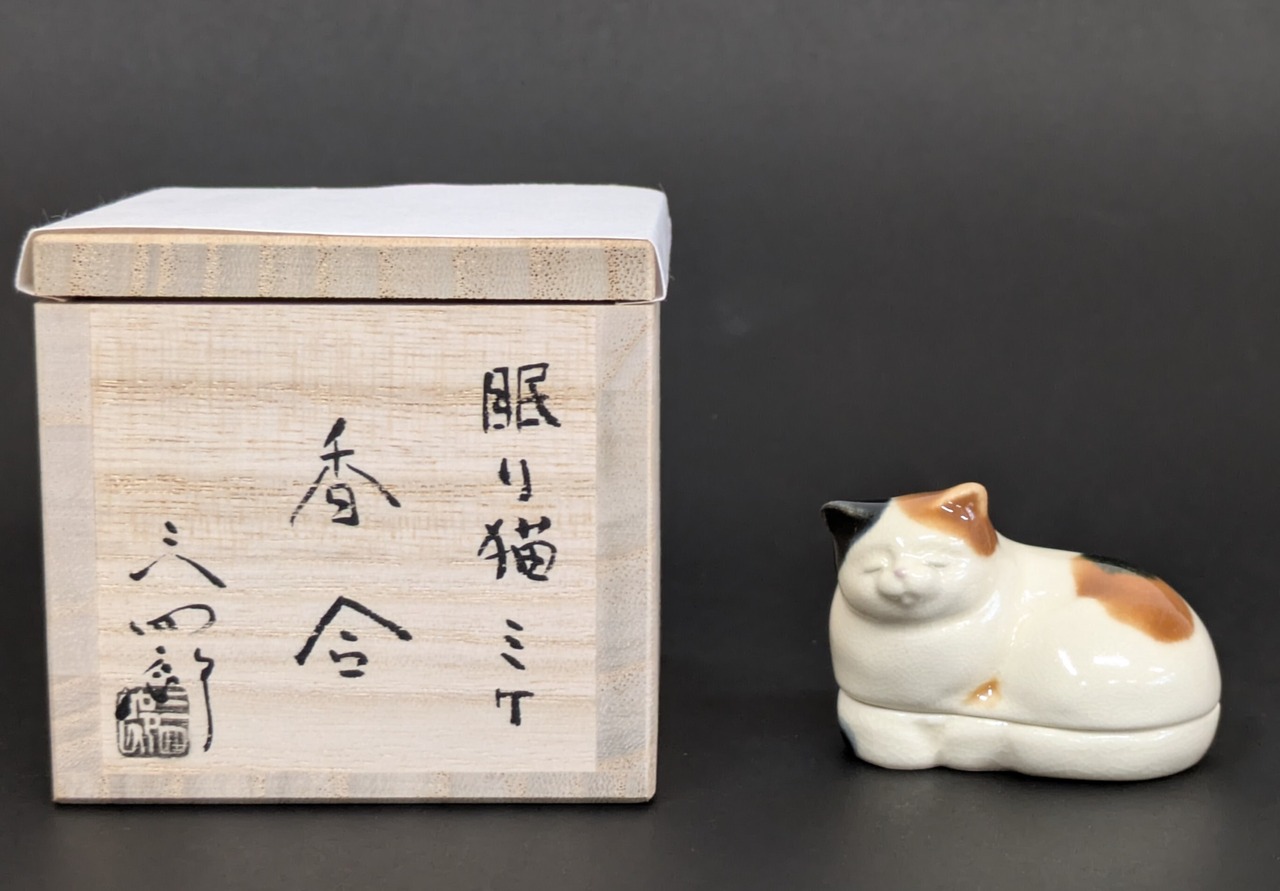 眠り猫ミケ
香合
三四郎